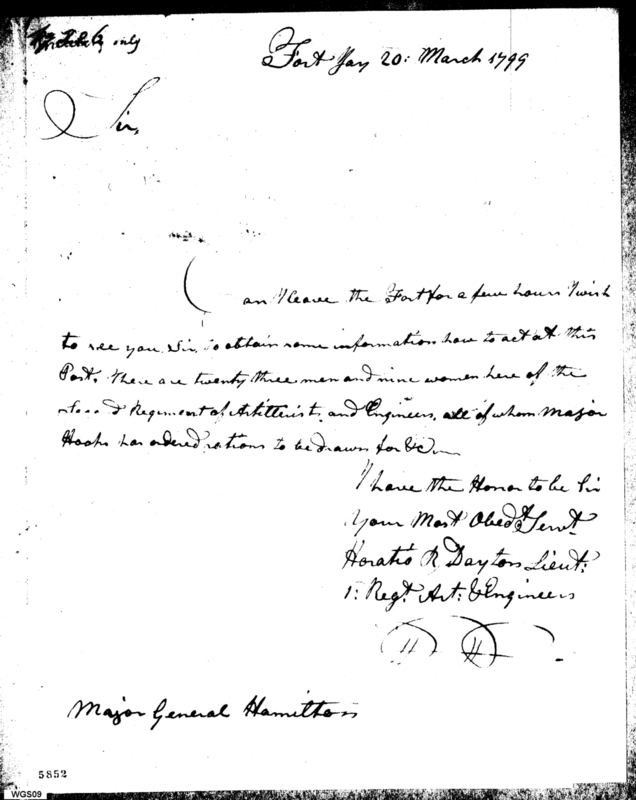 only
Fort Jay 20: March 1799
Sir,
Can I leave the Fort for a few hours I wish
to see you Sir, to obtain some information how to act at this
Post. There are twenty three men and nine women here of the
Second Regiment of Artillerist, and Engineers, all of whom Major
Hoops has ordered rations to be drawn for &c
I have the Honor to be Sir
Your Most Obedt. Servt.
Horatio R Dayton Lieut:
1: Regt. Art: & Engineers
Major General Hamilton
5852
WGS09